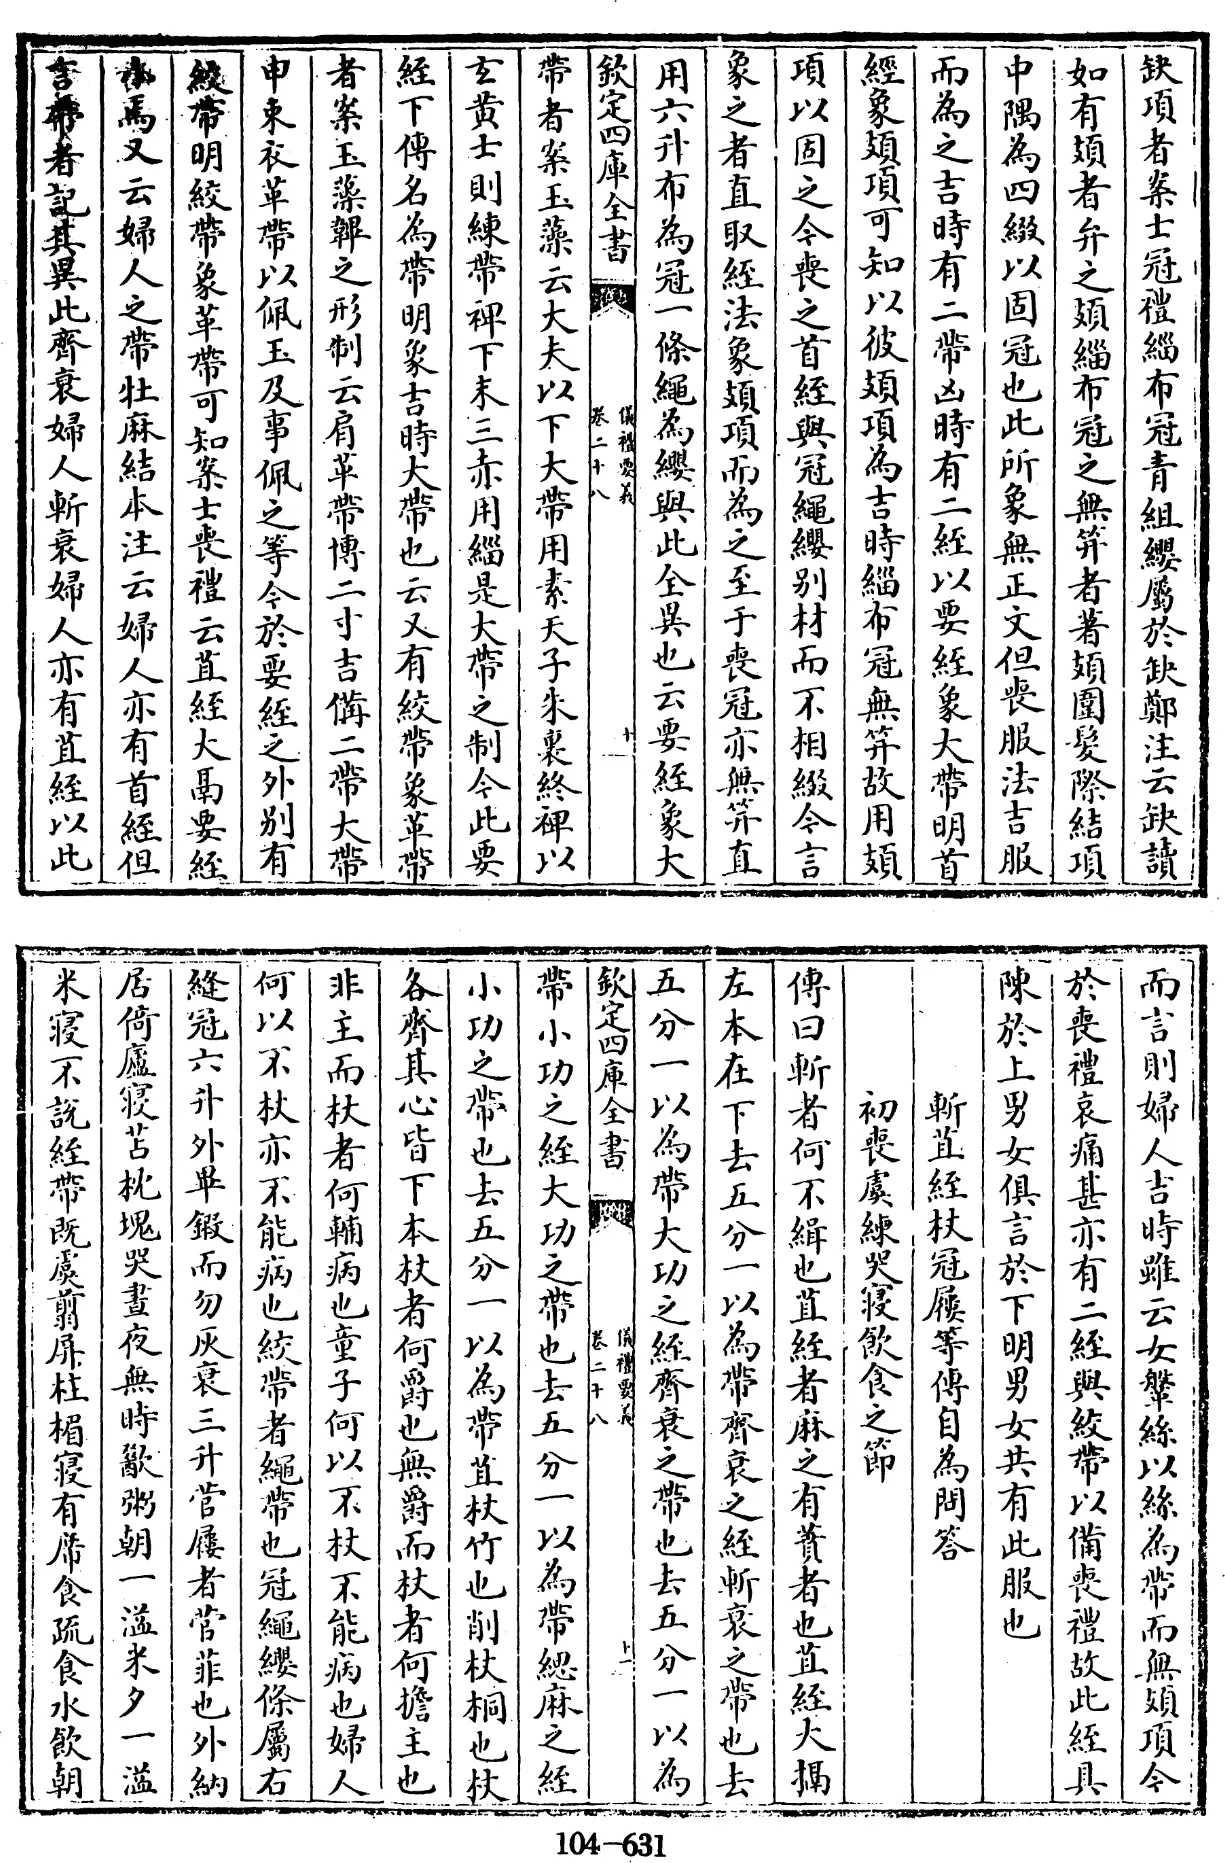 缺項者案士冠禮緇布冠青組纓屬於缺鄭注云缺讀
如有頍者弁之頍緇布冠之無笄者著頍圍髮際結項
中隅為四綴以固冠也此所象無正文但喪服法吉服
而為之吉時有二帶凶時有二絰以要絰象大帶明首
經象頍項可知以彼頍項為吉時緇布冠無笄故用頍
項以固之今喪之首絰與冠繩纓别材而不相綴今言
象之者直取絰法象頍項而為之至于喪冠亦無笄直
用六升布為冠一條繩為纓與此全異也云要絰象大
欽定四庫全書
儀禮要義
卷二十八
十
帶者案玉藻云大夫以下大帶用素天子朱裏終裨以
玄黄士則練帶裨下末三赤用緇是大帶之制今此要
絰下傳名為帶明象吉時大帶也云又有絞帶象革帶
者案玉藻韠之形制云肩革帶博二寸吉備二帶大帶
申束衣革帶以佩玉及事佩之等今於要絰之外别有
絞帶明絞帶象革帶可知案士喪禮云苴絰大鬲要絰
小焉又云婦人之帶牡麻結本注云婦人亦有首絰但
言帶者記其異此齊衰婦人斬衰婦人亦有苴絰以此
而言則婦人吉時雖云女鞶絲以絲為帶而無頍項今
於喪禮哀痛甚亦有二絰與絞帶以備喪禮故此絰具
陳於上男女俱言於下明男女共有此服也
斬苴絰杖冠屨等傳自為問答
初喪虞練哭寢飲食之節
傳曰斬者何不緝也苴絰者麻之有蕡者也苴絰大搹
左本在下去五分一以為帶齊衰之絰斬衰之帶也去
五分一以為帶大功之絰齊衰之帶也去五分一以為
欽定四庫全書
儀禮要義
卷二十八
十一
帶小功之絰大功之帶也去五分一以為帶緦麻之絰
小功之帶也去五分一以為帶苴杖竹也削杖桐也杖
各齊其心皆下本杖者何爵也無爵而杖者何擔主也
非主而杖者何輔病也童子何以不杖不能病也婦人
何以不杖亦不能病也絞帶者繩帶也冠繩纓條屬右
縫冠六升外畢鍛而勿灰衰三升菅屨者菅菲也外納
居倚廬寢苫枕塊哭晝夜無時歠粥朝一溢米夕一溢
米寢不說絰帶既虞翦屏柱楣寢有席食疏食水飲朝
104-631